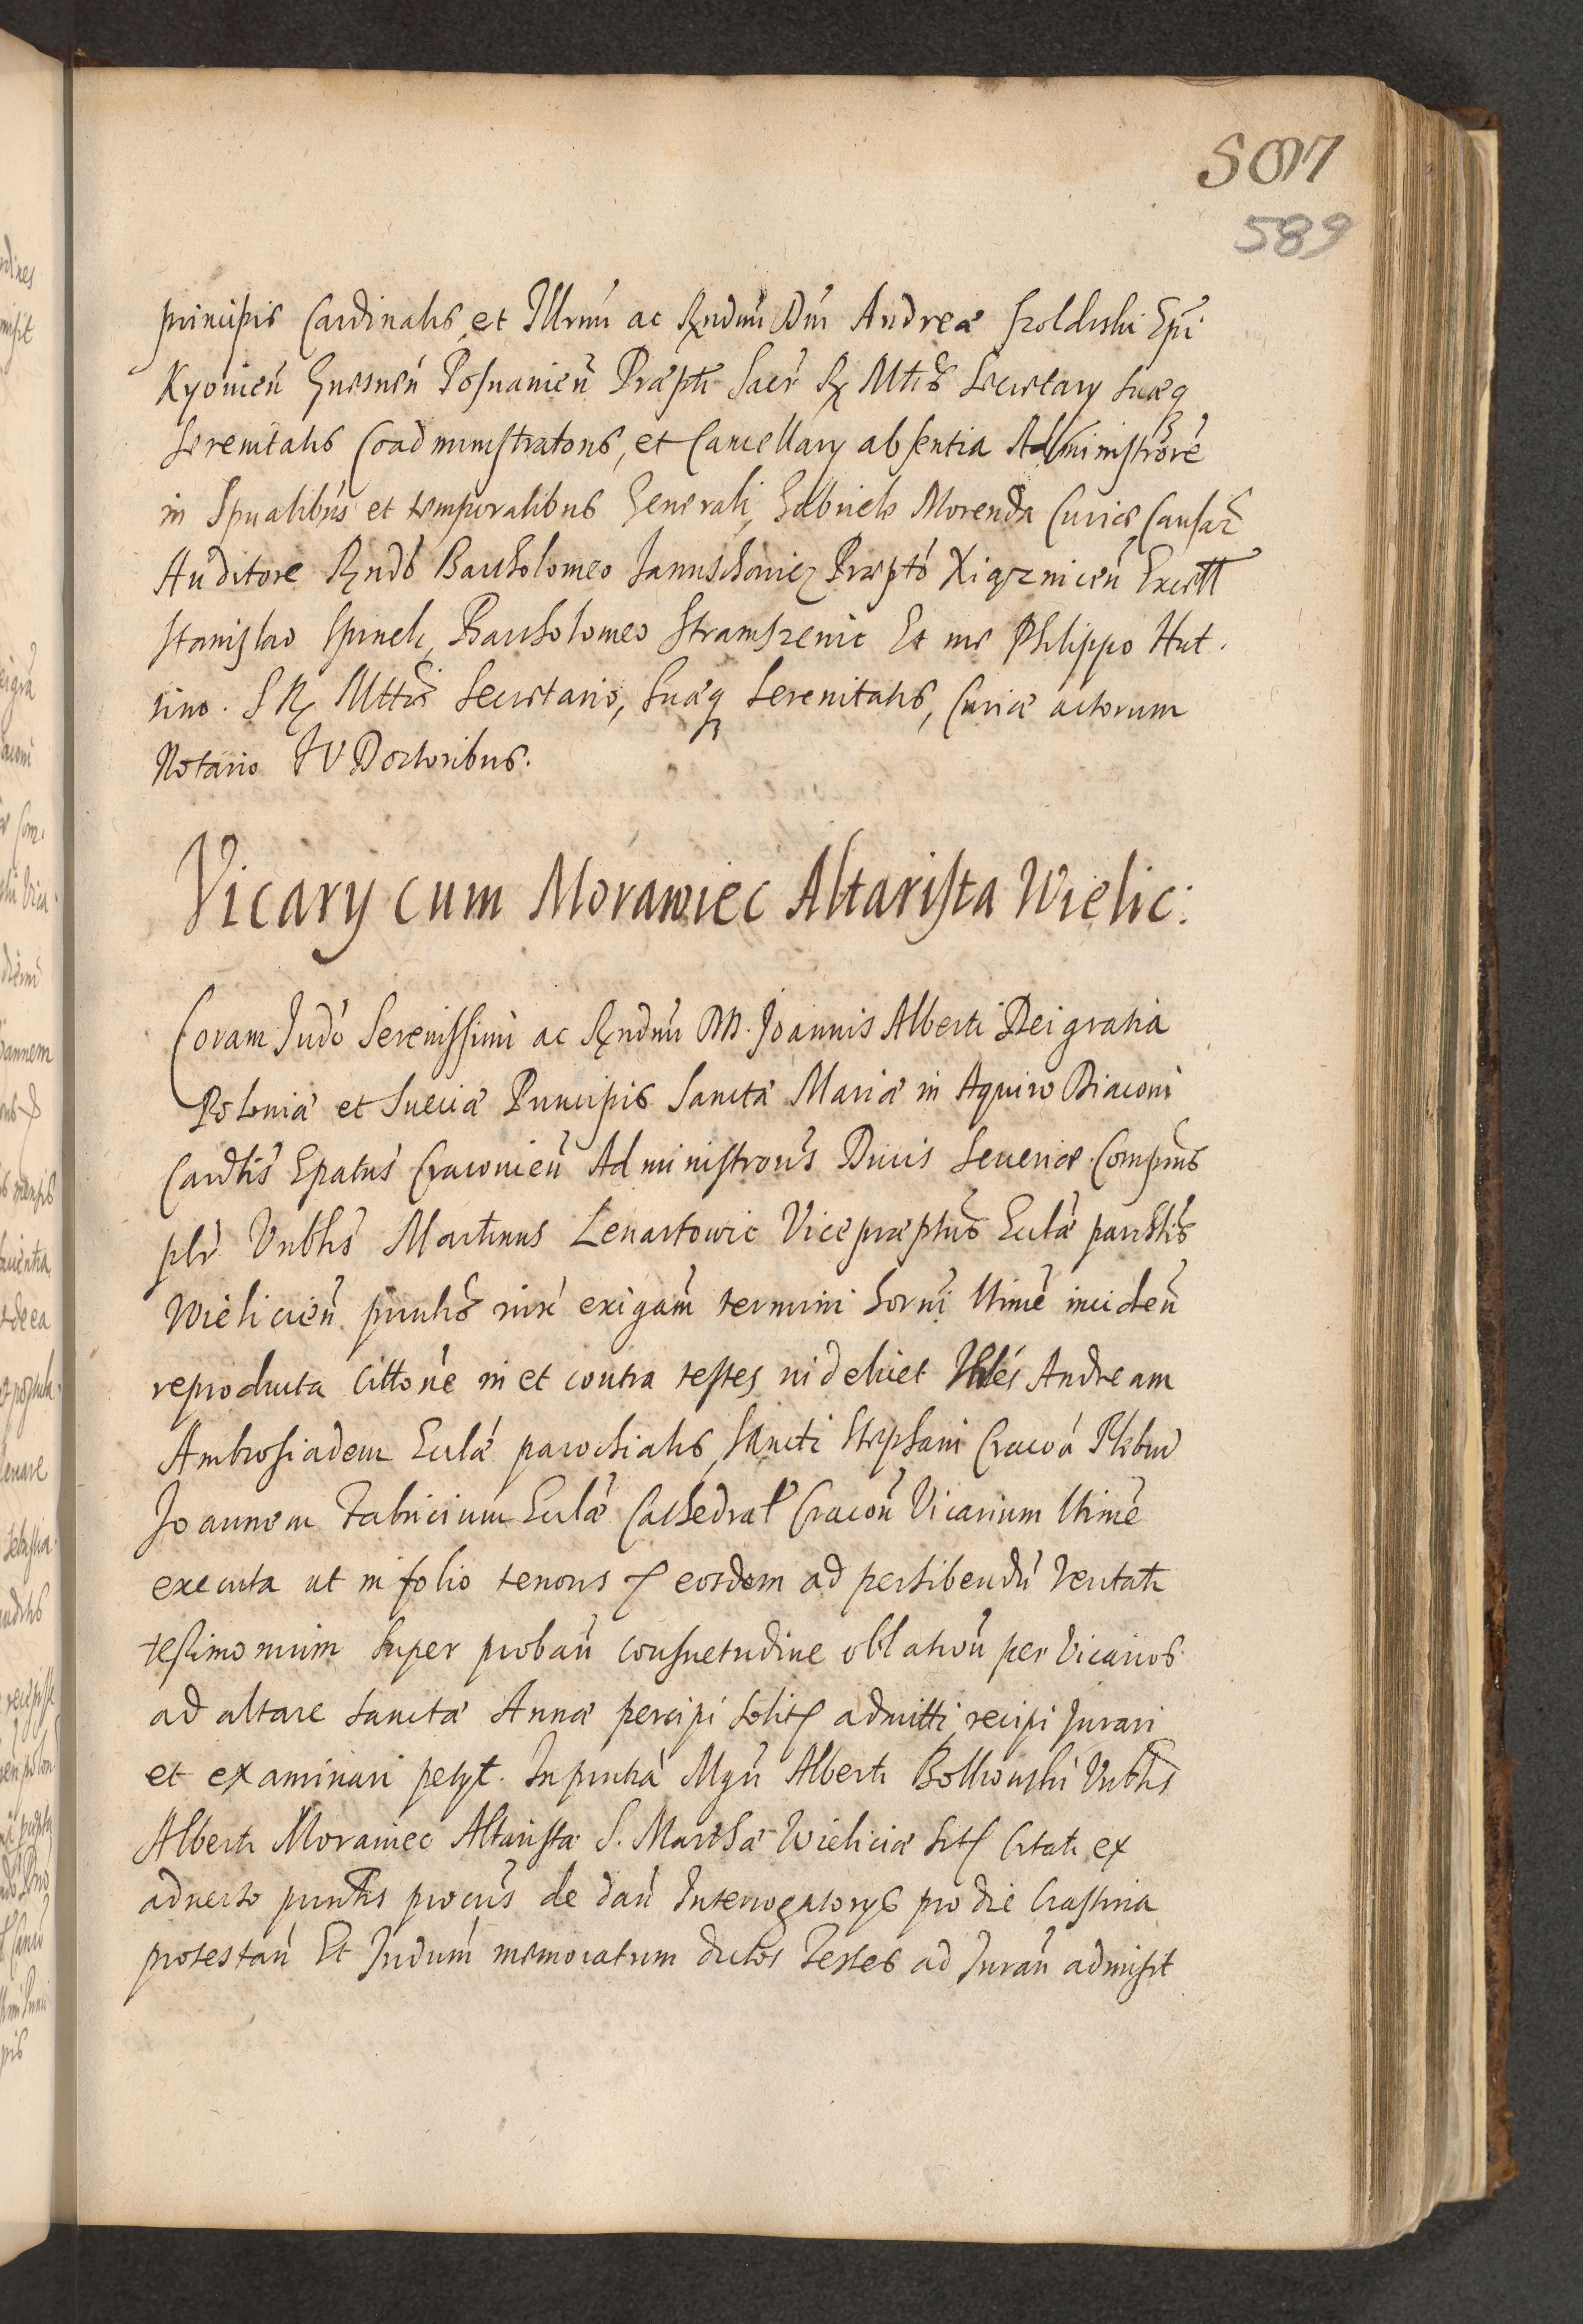 507
589
principis Cardinalis et Illrmi ac Rndmi Dni Andreæ Szoldrski Epi
Kyovien Gnesnen Posnanien Præpti Sacr R Mttis Secretary Suæq
Serenitatis Coadministratoris, et Cancellary absentia Administrore
in Spualibus et temporalibus Generali, Gabriele Morenda Curiæ Causar
Auditore Rndo Bartholomeo Januschowicz Præpto Xiqznicen Excell
Stanislao Spinek, Bartholomeo Stramszenic Et me Philippo Hut.
sino. S R Mttis Secretario, Suæq Serenitatis, Curiæ actorum
Notario IV Doctoribus.
Vicary cum Morawiec Altarista Wielic:
Coram Judo Serenissimi ac Rndmi DD. Joannis Alberti Dei gratia
Poloniæ et Sueciæ Principis Sanctæ Mariæ in Aquiro Diaconi
Cardlis Epatus Cracovien Administroris Ducis Severiæ Comprns
plr Vnblis Martinus Lenartowic Vicepræptus Eclæ parchlis
Wielicien prinlis mxe exigam termini horni ltime inciden
reproducta Cittone in et contra testes videlicet Hbles Andream
Ambrosiadem Eclæ parochialis, Sancti Stephani Cracoa Plebm
Joannem Fabricium Eclæ Cathedral Cracon Vicarium ltime
executa ut in folio tenoris & eosdem ad perhibendu veritati
testimonium super proban consuetudine oblation per Vicarios
ad altare Sanctæ Annæ percipi solit admitti recipi Jurari
et examinari petyt. In prntia Mgri Alberti Bolkowski Vnblis
Alberti Morawiec Altaristæ S. Marthæ Wieliciæ Sit Citati ex
adverso prntlis procuris de dan Interrogatorys pro die Crastina
protestan Et Judum memoratum dictos Testes ad Juran admisit